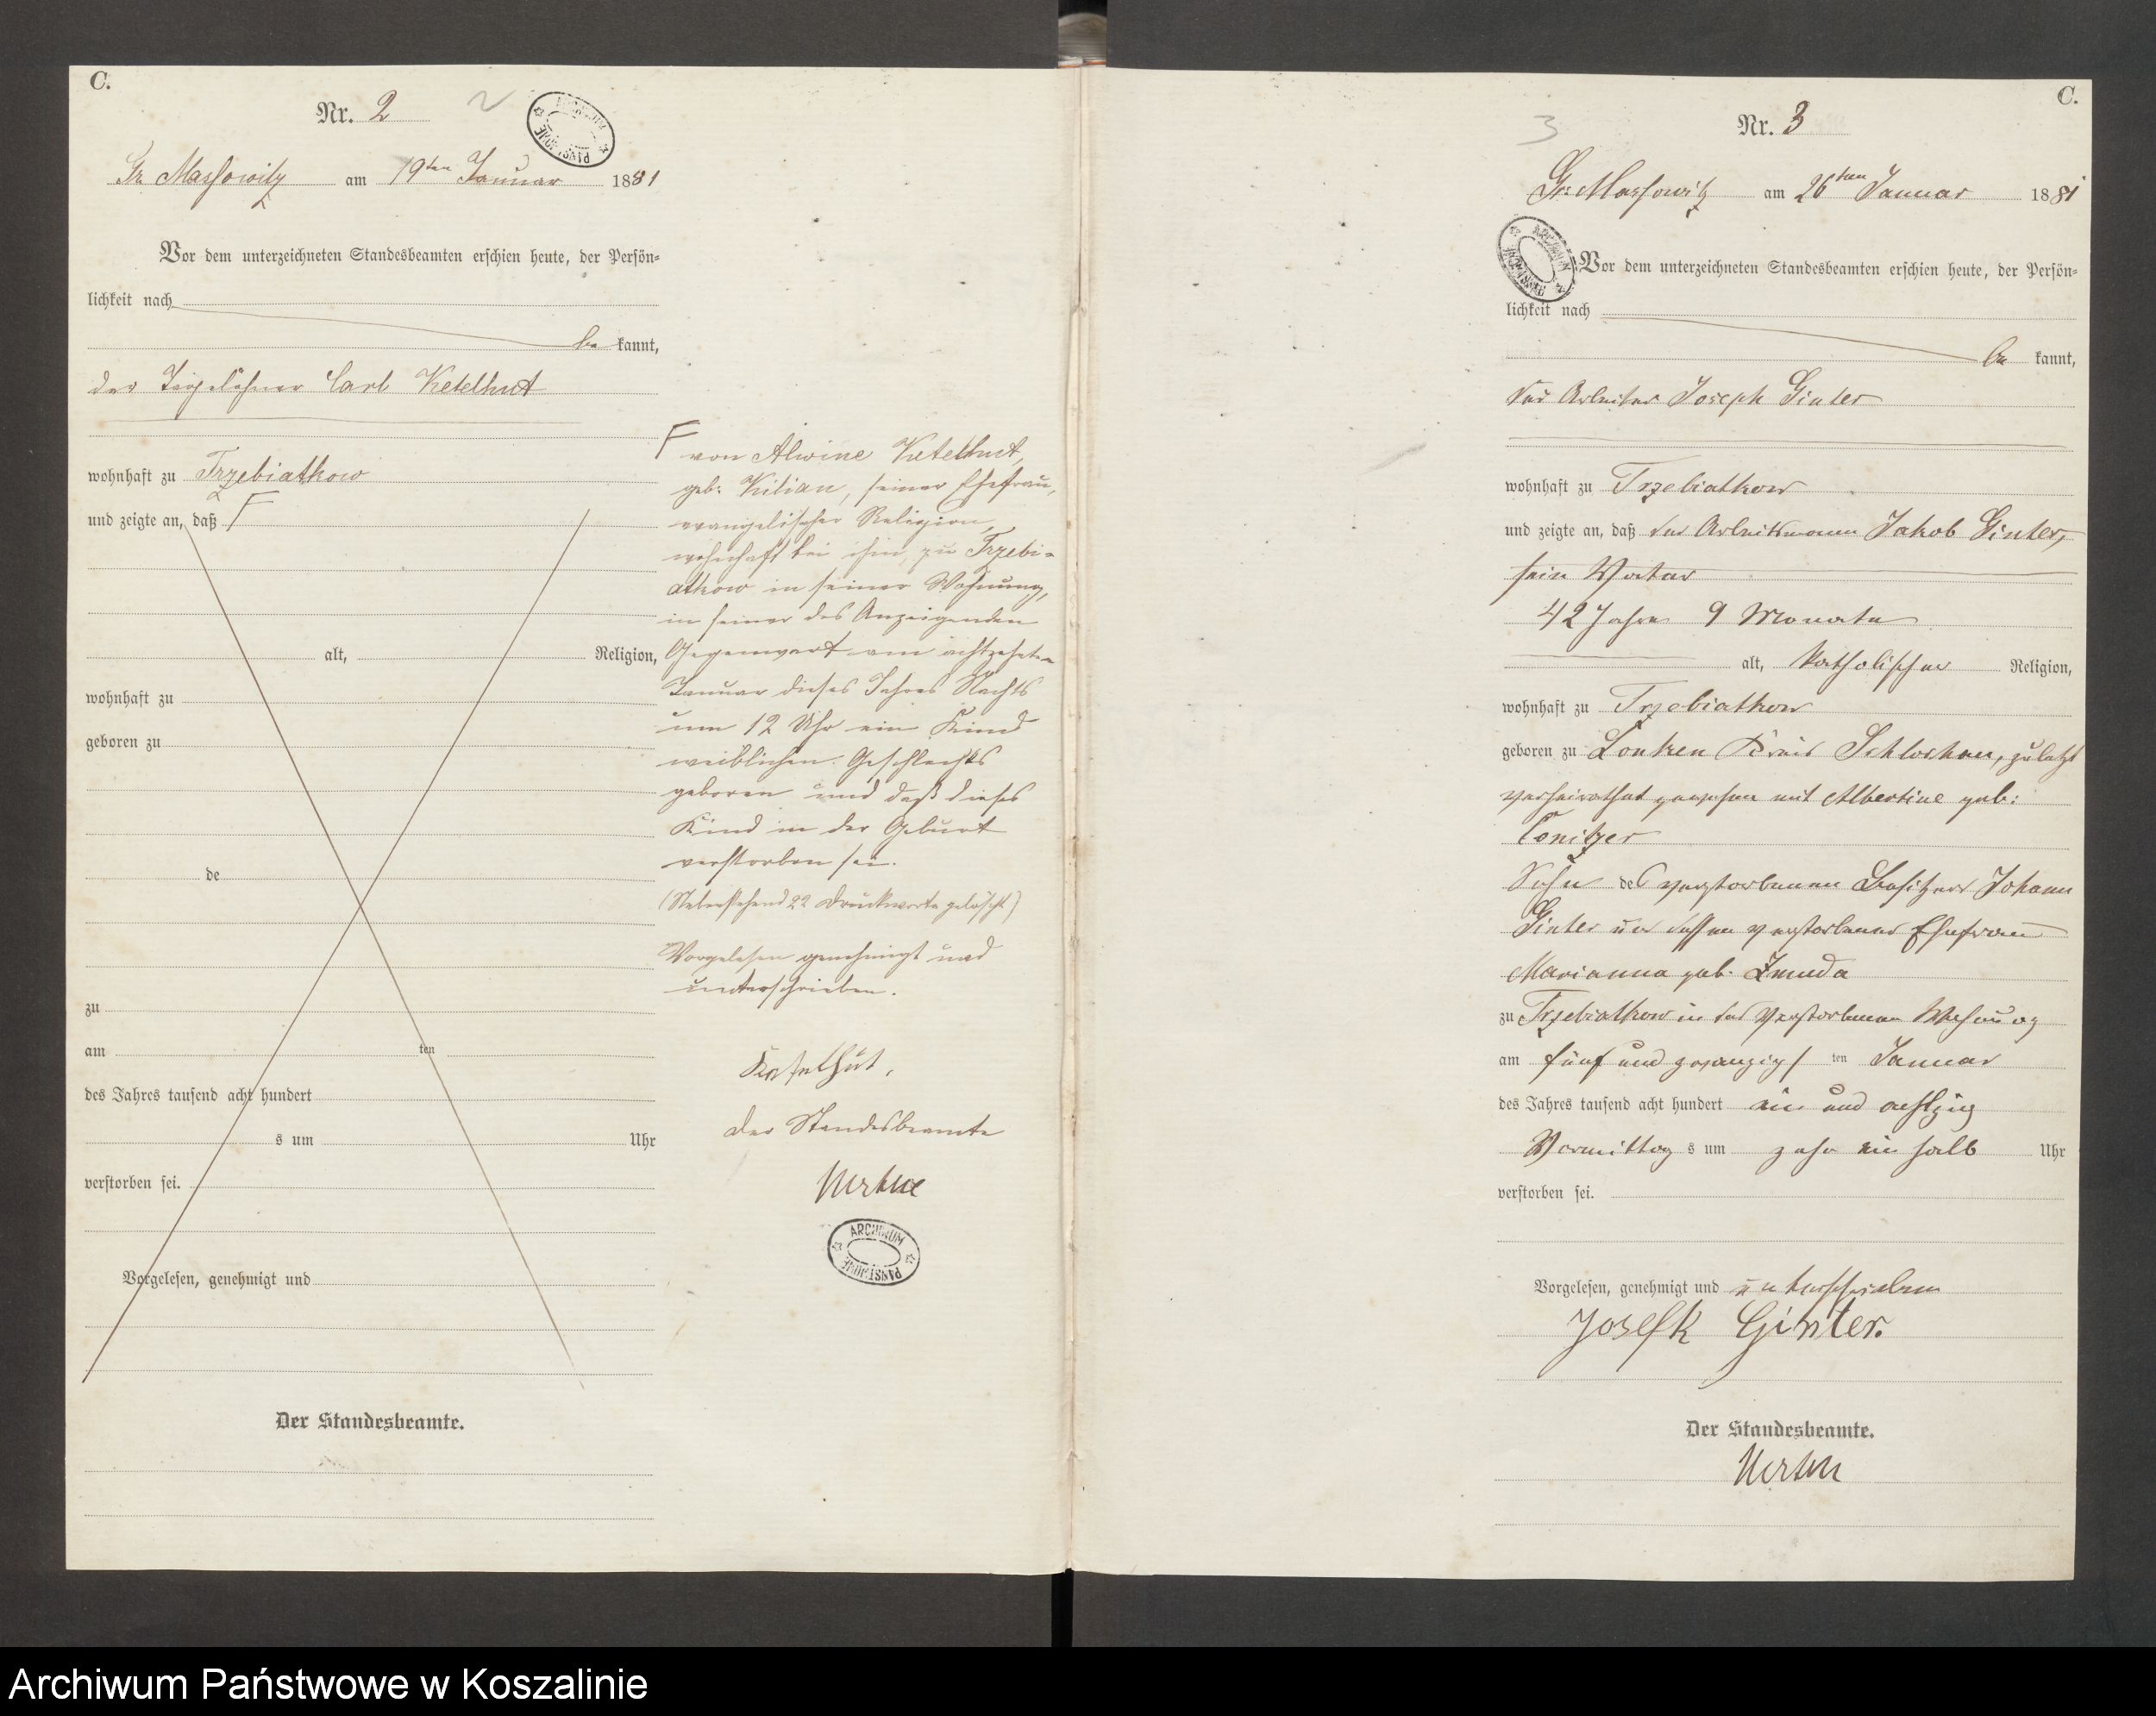 C.
Nr. 2
2
Gr. Massowitz am 19ten Januar 1881
Vor dem unterzeichneten Standesbeamten erschien heute, der Persön-
lichkeit nach
be kannt,
der Tagelöhner Carl Ketelhut
wohnhaft zu Trzebiatkow
und zeigte an, daß F
alt, Religion,
wohnhaft zu
geboren zu
de
zu
am ten
des Jahres tausend acht hundert
s um Uhr
verstorben sei.
Vorgelesen, genehmigt und
Der Standesbeamte.
F von Alwine Ketelhut,
geb. Kilian, seiner Ehefrau,
evangelischer Religion,
wohnhaft bei ihm, zu Trzebi-
atkow in seiner Wohnung,
in seiner des Anzeigenden
Gegenwart am achtzehnten
Januar dieses Jahres Nachts
um 12 Uhr ein Kind
weiblichen Geschlechts
geboren und daß dieses
Kind in der Geburt
verstorben sei.
(Nebenstehend 22 Druckworte gelöscht)
Vorgelesen genehmigt und
unterschrieben.
Ketelhut,
Der Standesbeamte
ARCHIWUM PAŃSTWOWE
C.
Nr. 3
3
Gr. Massowitz am 26ten Januar 1881
ARCHIWUM PAŃSTWOWE
Vor dem unterzeichneten Standesbeamten erschien heute, der Persön-
lichkeit nach
be kannt,
der Arbeiter Joseph Ginter
wohnhaft zu Trzebiatkow
und zeigte an, daß der Arbeitsmann Jakob Ginter,
sein Vater
42 Jahre 9 Monate
alt, katholischer Religion,
wohnhaft zu Trzebiatkow
geboren zu Lonken Kreis Schlochau, zuletzt
verheirathet gewesen mit Albertine geb:
Conitzer
Sohn des verstorbenen Besitzers Johann
Ginter und dessen verstorbener Ehefrau
Marianna geb. Zmuda
zu Trzebiatkow in des Verstorbenen Wohnung
am fünf und zwanzigs ten Januar
des Jahres tausend acht hundert ein und achtzig
Vormittag s um zehn ein halb Uhr
verstorben sei.
Vorgelesen, genehmigt und unterschrieben
Josefk Ginter.
Der Standesbeamte.
Archiwum Państwowe w Koszalinie